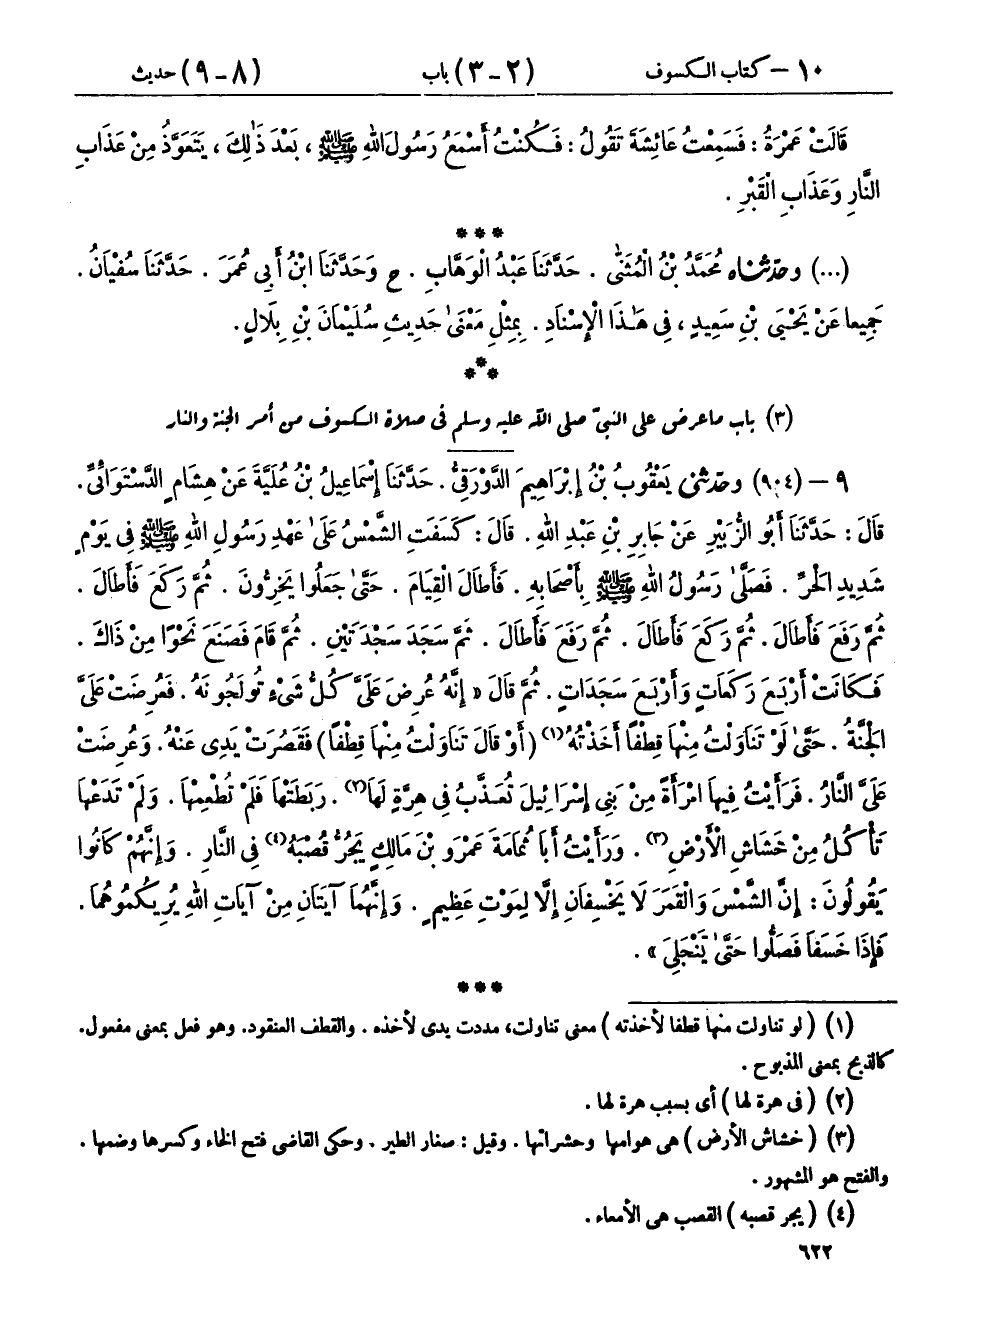 ١٠ – كتاب الكسوف (٢ – ٣) باب (٨ – ٩) حديث
قَالَتْ عَمْرَةُ : فَسَمِعْتُ عَائِشَةَ تَقُولُ : فَكُنْتُ أَسْمَعُ رَسُولَ اللهِ ﷺ ، بَعْدَ ذَٰلِكَ ، يَتَعَوَّذُ مِنْ عَذَابِ
النَّارِ وَعَذَابِ الْقَبْرِ .
***
(...) وحدثناه مُحَمَّدُ بْنُ الْمُثَنَّىٰ . حَدَّثَنَا عَبْدُ الْوَهَّابِ . ح وَحَدَّثَنَا ابْنُ أَبِي عُمَرَ . حَدَّثَنَا سُفْيَانُ .
جَمِيعا عَنْ يَحْيَىٰ بْنِ سَعِيدٍ ، فِي هَٰذَا الْإِسْنَادِ . بِمِثْلِ مَعْنَىٰ حَدِيثِ سُلَيْمَانَ بْنِ بِلَالٍ .
***
(٣) باب ما عرض على النبيّ صلى الله عليه وسلم فى صلاة الكسوف من أمر الجنة والنار
٩ – (٩٠٤) وحدثنى يَعْقُوبُ بْنُ إِبْرَاهِيمَ الدَّوْرَقِيُّ . حَدَّثَنَا إِسْمَاعِيلُ بْنُ عُلَيَّةَ عَنْ هِشَامٍ الدَّسْتَوَائِيِّ .
قَالَ : حَدَّثَنَا أَبُو الزُّبَيْرِ عَنْ جَابِرِ بْنِ عَبْدِ اللهِ . قَالَ : كَسَفَتِ الشَّمْسُ عَلَىٰ عَهْدِ رَسُولِ اللهِ ﷺ فِي يَوْمٍ
شَدِيدِ الْحَرِّ . فَصَلَّىٰ رَسُولُ اللهِ ﷺ بِأَصْحَابِهِ . فَأَطَالَ الْقِيَامَ . حَتَّىٰ جَعَلُوا يَخِرُّونَ . ثُمَّ رَكَعَ فَأَطَالَ .
ثُمَّ رَفَعَ فَأَطَالَ . ثُمَّ رَكَعَ فَأَطَالَ . ثُمَّ رَفَعَ فَأَطَالَ . ثُمَّ سَجَدَ سَجْدَتَيْنِ . ثُمَّ قَامَ فَصَنَعَ نَحْوًا مِنْ ذَاكَ .
فَكَانَتْ أَرْبَعَ رَكَعَاتٍ وَأَرْبَعَ سَجَدَاتٍ . ثُمَّ قَالَ « إِنَّهُ عُرِضَ عَلَيَّ كُلُّ شَيْءٍ تُولَجُونَهُ . فَعُرِضَتْ عَلَيَّ
الْجَنَّةُ . حَتَّىٰ لَوْ تَنَاوَلْتُ مِنْهَا قِطْفًا أَخَذْتُهُ(١) (أَوْ قَالَ تَنَاوَلْتُ مِنْهَا قِطْفًا) فَقَصُرَتْ يَدِي عَنْهُ . وَعُرِضَتْ
عَلَيَّ النَّارُ . فَرَأَيْتُ فِيهَا امْرَأَةً مِنْ بَنِي إِسْرَائِيلَ تُعَذَّبُ فِي هِرَّةٍ لَهَا(٢) . رَبَطَتْهَا فَلَمْ تُطْعِمْهَا . وَلَمْ تَدَعْهَا
تَأْكُلُ مِنْ خَشَاشِ الْأَرْضِ(٣) . وَرَأَيْتُ أَبَا ثُمَامَةَ عَمْرَو بْنَ مَالِكٍ يَجُرُّ قُصْبَهُ(٤) فِي النَّارِ . وَإِنَّهُمْ كَانُوا
يَقُولُونَ : إِنَّ الشَّمْسَ وَالْقَمَرَ لَا يَخْسِفَانِ إِلَّا لِمَوْتِ عَظِيمٍ . وَإِنَّهُمَا آيَتَانِ مِنْ آيَاتِ اللهِ يُرِيكُمُوهُمَا .
فَإِذَا خَسَفَا فَصَلُّوا حَتَّىٰ يَنْجَلِيَ » .
***
(١) (لو تناولت منها قطفا لأخذته) معنى تناولت، مددت يدى لأخذه . والقطف العنقود. وهو فعل بمعنى مفعول.
كالذبح بمعنى المذبوح .
(٢) (فى هرة لها) أى بسبب هرة لها .
(٣) (خشاش الأرض) هى هوامها وحشراتها . وقيل : صغار الطير . وحكى القاضى فتح الخاء وكسرها وضمها .
والفتح هو المشهور .
(٤) (يجر قصبه) القصب هى الأمعاء .
٦٢٢